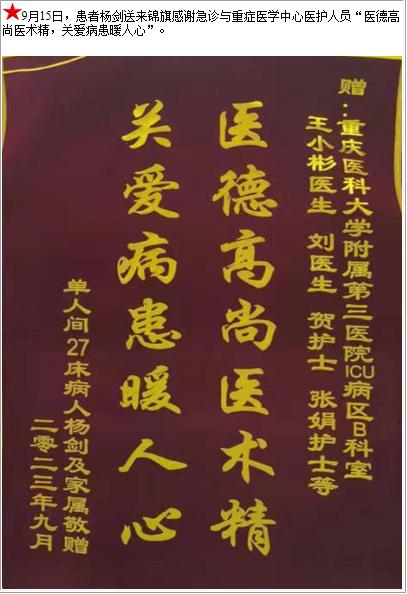 ★9月15日，患者杨剑送来锦旗感谢急诊与重症医学中心医护人员“医德高
尚医术精，关爱病患暖人心”。
赠：重庆医科大学附属第三医院ICU病区B科室
王小彬医生 刘医生 贺护士 张娟护士等
医德高尚医术精
关爱病患暖人心
单人间27床病人杨剑及家属敬赠
二零二三年九月